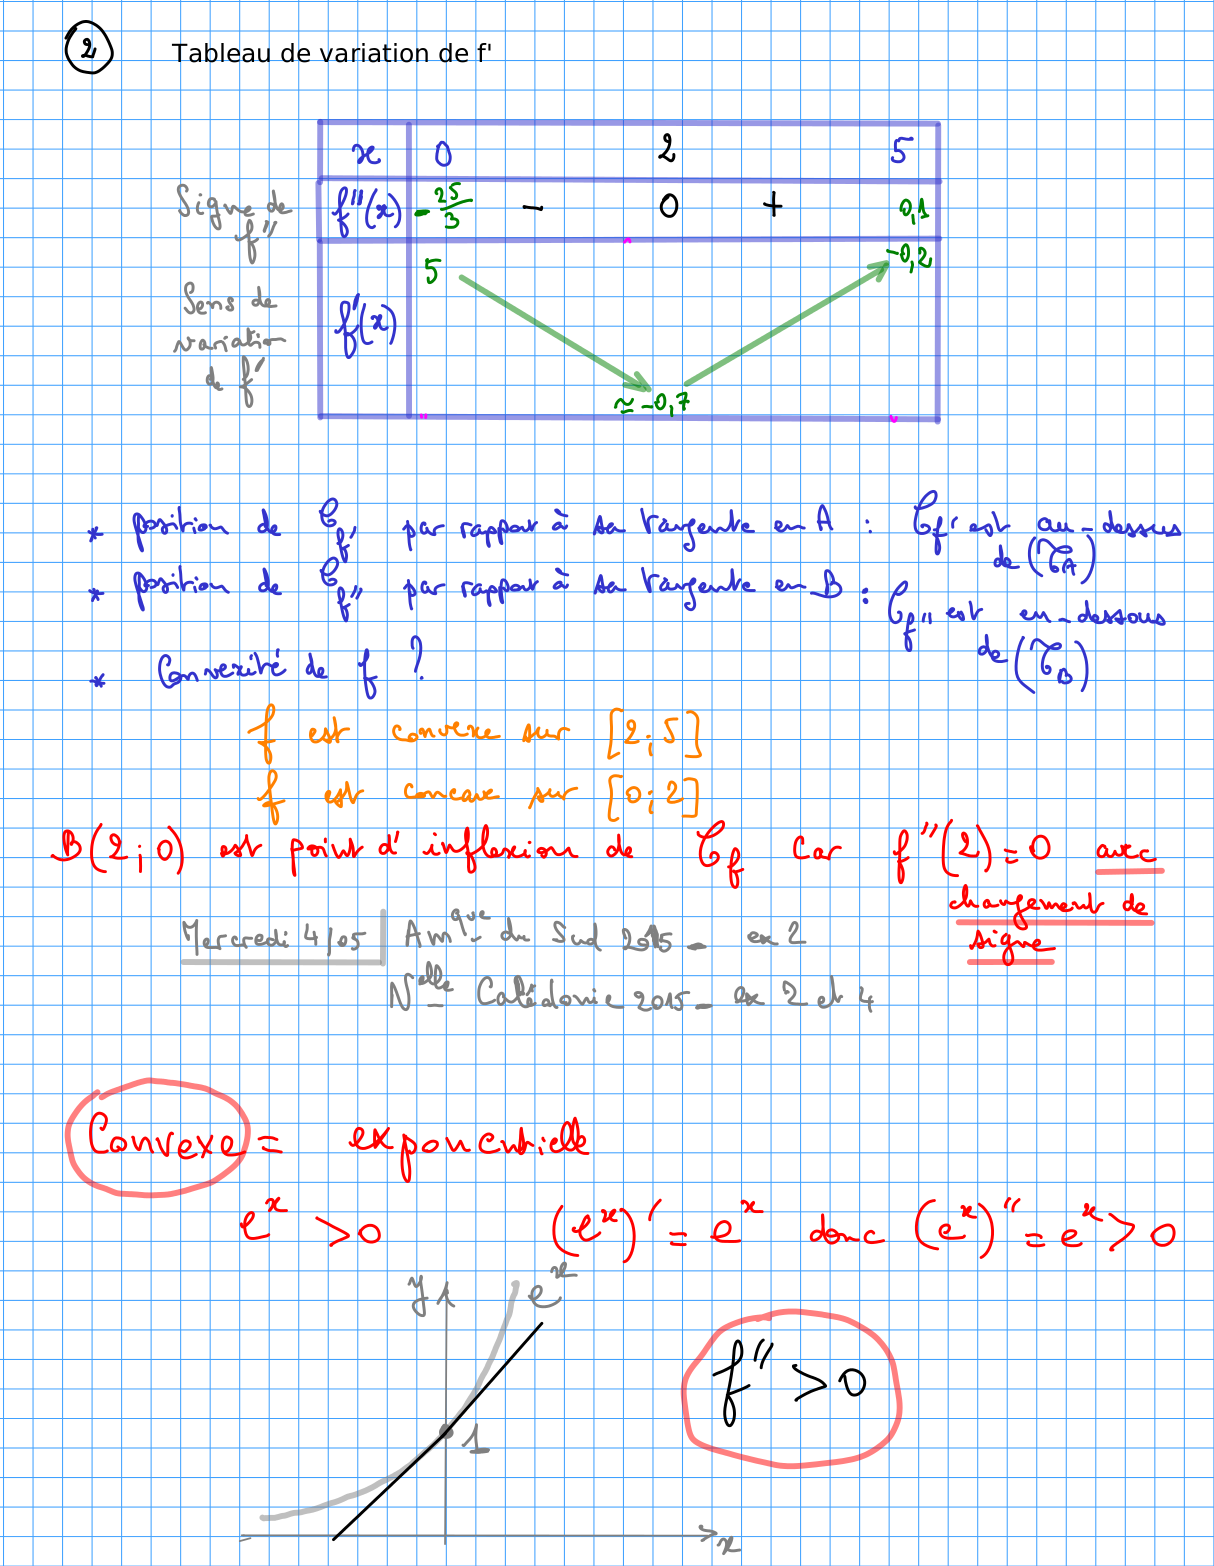 2 Tableau de variation de f'
x 0 2 5
Signe de f'' f''(x) -25/3 - 0 + 0,1
Sens de variation de f' f'(x) 5 ≃ -0,7 -0,2
* position de Cf' par rapport à sa tangente en A : Cf' est au-dessus
de (TA)
* position de Cf'' par rapport à sa tangente en B : Cf'' est en-dessous
de (TB)
* Convexité de f ?
f est convexe sur [2;5]
f est concave sur [0;2]
B(2;0) est point d'inflexion de Cf car f''(2)=0 avec
changement de
signe
Mercredi 4/05 Amque du Sud 2015 - ex 2
Nelle Calédonie 2015 - ex 2 et 4
Convexe = exponentielle
e^x >0 (e^x)' = e^x donc (e^x)'' = e^x > 0
y e^x
f'' >0
1
x